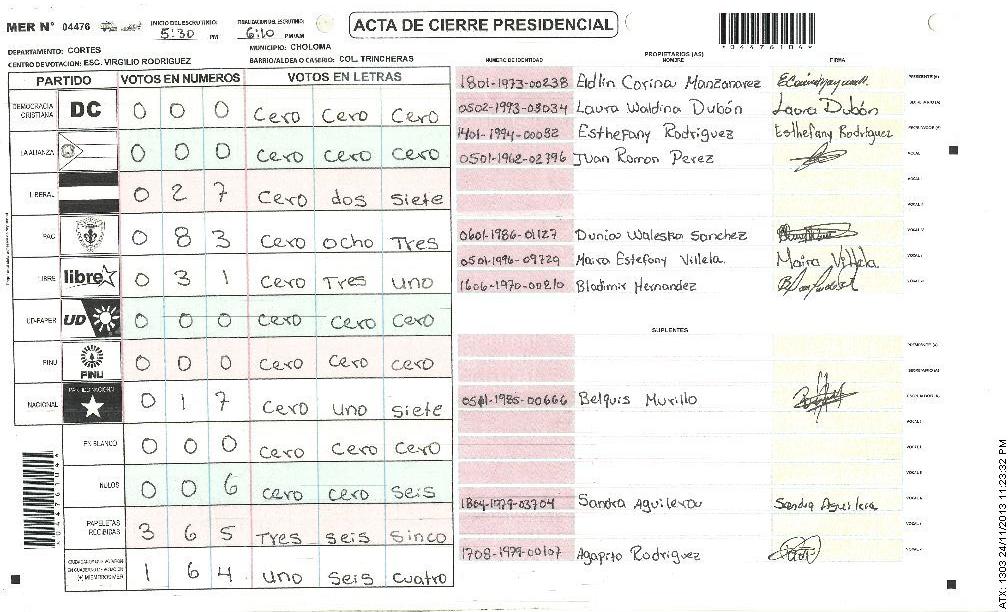 MER N° 04476
INICIO DEL ESCRUTINIO: 5:30 PM
FINALIZACION DEL ESCRUTINIO: 6:10 PM/AM
ACTA DE CIERRE PRESIDENCIAL
04476104
DEPARTAMENTO: CORTES
MUNICIPIO: CHOLOMA
CENTRO DE VOTACION: ESC. VIRGILIO RODRIGUEZ
BARRIO/ALDEA O CASERIO: COL. TRINCHERAS
PARTIDO VOTOS EN NUMEROS VOTOS EN LETRAS
DEMOCRACIA CRISTIANA DC 0 0 0 Cero Cero Cero
LA ALIANZA 0 0 0 Cero Cero Cero
LIBERAL 0 2 7 Cero dos Siete
PAC 0 8 3 Cero ocho Tres
LIBRE libre 0 3 1 Cero Tres uno
UD-FAPER UD 0 0 0 Cero Cero Cero
PINU PINU 0 0 0 Cero Cero Cero
NACIONAL PARTIDO NACIONAL 0 1 7 Cero uno Siete
EN BLANCO 0 0 0 Cero Cero Cero
NULOS 0 0 6 Cero Cero Seis
PAPELETAS RECIBIDAS 3 6 5 Tres seis Sinco
1 6 4 uno Seis Cuatro
04476104
PROPIETARIOS (AS)
NUMERO DE IDENTIDAD NOMBRE FIRMA
1801-1973-00238 Eldlin Corina Manzanarez PRESIDENTE (A)
0502-1993-03034 Laura Waldina Dubón Laura Dubón SECRETARIO (A)
1401-1994-00082 Esthefany Rodriguez Esthefany Rodriguez ESCRUTADOR (A)
0501-1962-02796 Juan Ramon Perez VOCAL
0601-1986-01127 Dunia Waleska Sanchez
0501-1996-09729 Maira Estefany Villela. Maira Villela.
1606-1970-00210 Bladimir Hernandez
SUPLENTES
PRESIDENTE (A)
SECRETARIO (A)
0501-1985-00666 Belquis Murillo ESCRUTADOR (A)
1804-1979-03704 Sandra Aguilera Sandra Aguilera
1708-1979-00107 Agapito Rodriguez
ATX: 1303 24/11/2013 11:23:32 PM